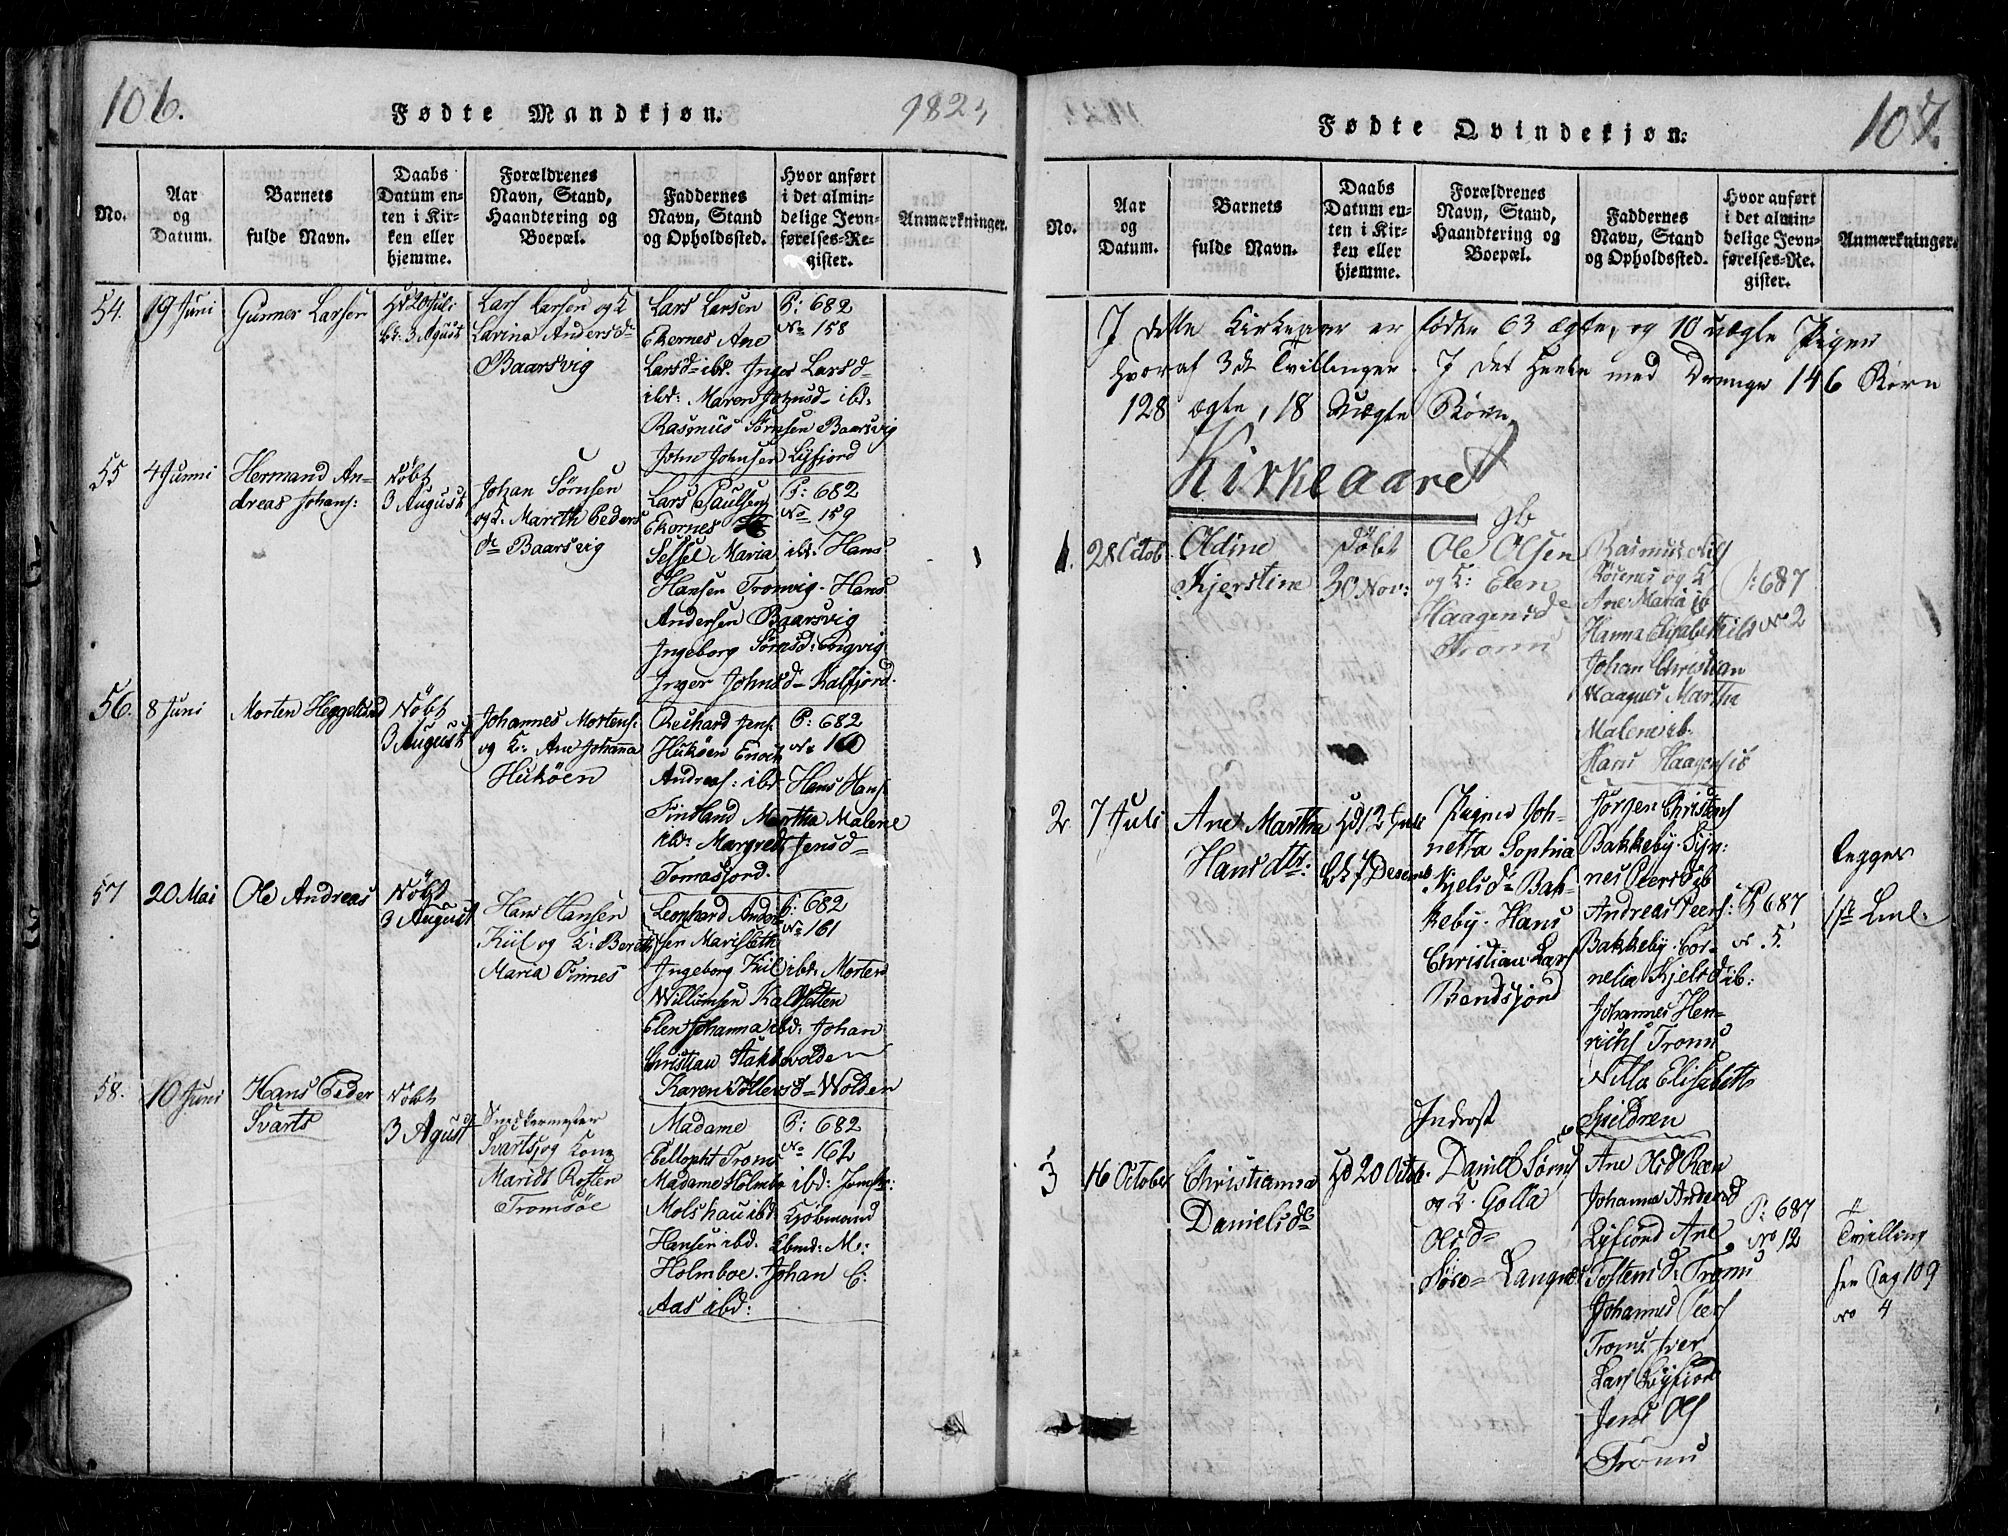 106.
Fødte Mandkjøn.
182
No.
Aar
og
Datum.
Barnets
fulde Navn.
Daabs
Datum en-
ten i Kir-
ken eller
hjemme.
Forældrenes
Navn, Stand,
Haandtering og
Boepæl.
Faddernes
Navn, Stand
og Opholdssted.
Hvor anført
i det almin-
delige Jevn-
førelses-Re-
gister.
Anmærkninger.
54.
19 Juni
Gunner Larsen
Hd 20 Juli
Bk. 3 Agust
Lars Larsen og K
Lavina Andersd
Baarsvig
Lars Larsen
Ekernes Ane
Larsd ibd. Inger Larsd
ibd: Maren Johnsd ibd:
Rasmus Sørnsen Baarsvig
John Johnsen Lyfiord
P: 682
No 158
55
4 Junni
Hermand An-
dreas Johans:
Døbt
3 August
Johan Sørnsen
og K. Mareth Peders
dr Baarsvig
Lars Paulsen
Ekornes
Sessel Maria ibd. Hans
Hansen Tronvig. Hans
Andersen Baarsvig
Ingeborg Sørnsd:
Inger Johnsd Kalfjord.
P: 682
No 159
56.
8 Juni
Morten Heggelund
Døbt
3 August
Johannes Mortens.
og K: Ane Johanna
Hukøen
Rechard Jens.
Hukøen Enoch
Andreas: ibd Hans Hans.
Finland Martha Malene
ibd: Margreth Jensd
Tomasjord.
P: 682
No 160
57
20 Mai
Ole Andreas
Døbt
3 August
Hans Hansen
Kiil og K: Bereth
Maria Finnes
Leonhard Ander
sen Marisleth
Ingeborg Kiil ibd: Morten
Willumsen Kalvsletten
Elen Johanna ibd: Johan
Christian Stakkevolden
Karen Tollevsd Wolden
P: 682
No 161
58.
10 Juni
Hans Peder
Svarts
Døbt
3 Agust
Snedkermester
Svarts og Kone
Marith Rosten
Tromsøe
Madame
Ebeltopht Troms
Madame Holmbo ibd: Jomfr:
Molshau ibd: Kjøbmand
Hansen ibd. Kbmd: M:
Holmboe. Johan C:
Aas ibd:
P: 682
No 162
Fødte Qvindekjøn.
107.
No.
Aar
og
Datum.
Barnets
fulde Navn.
Daabs
Datum en-
ten i Kir-
ken eller
hjemme.
Forældrenes
Navn, Stand,
Haandtering og
Boepæl.
Faddernes
Navn, Stand
og Opholdssted.
Hvor anført
i det almin-
delige Jevn-
førelses-Re-
gister.
Anmærkninger.
I dette Kirkeaar er fødte 63 ægte, og 10 uægte Piger
hvoraf 3 Tvillinger. I det Heele med Drenge 146 Børn
128 ægte, 18 Uægte Børn
Kirkeaaret
1.
28 Octob.
Oldine
Kjerstine
Døbt
30 Nov:
gb
Ole Olsen
og K: Elen
Haagensd
Tromn
Rasmus
og K
Ane Maria ib
Hanna Elisabeth ib
Johan Christian
Waagnes Martha
Malene ib.
Hans Haagens ib
P: 687
No 2
2
7 Juli
Ane Martha
Hans dtr:
Hd 12 Juli
Bk 7 Decemb
Pigen Joh-
netta Sophia
Kjelsd Bak-
keby. Hans
Christian Lars
Bendsjord
Jørgen Christens
Bakkeby. Syn:
nev Peersd ib
Andreas Peers:
Bakkeby. Cor-
nelia Kjelsd ib:
Johannes Hen-
richs Tromn
Nilla Elisabeth
Spildren
P 687
No 5.
begges
1ste Leml.
3
16 October
Christianna
Danielsdr
Hd 20 Octb.
Inderst
Daniel Sørns
og K. Golla
Olsd
Langnes
Ane Olsd Reen
Johanna Andersd
Lyfiord Ane
Tostensd. Tromn
Johannes Peers
Troms
Lars Lyfiord
Jens Ols
Tromn
P: 687
No 12
Tvilling
see Pag 109
No 4